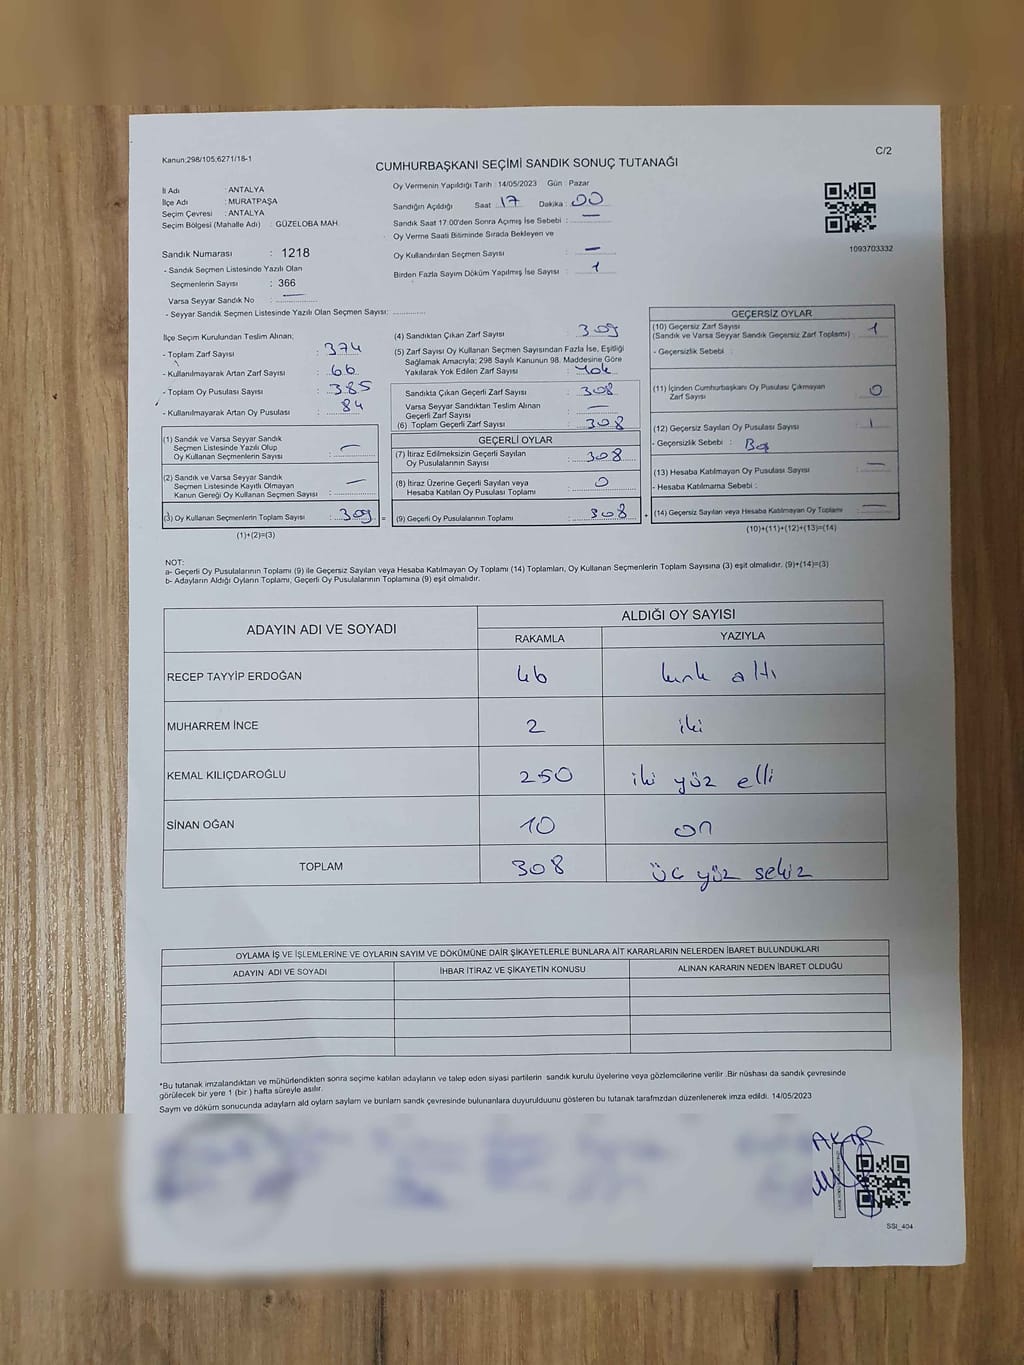 Kanun;298/105;6271/18-1
C/2
CUMHURBAŞKANI SEÇİMİ SANDIK SONUÇ TUTANAĞI
İl Adı : ANTALYA
İlçe Adı : MURATPAŞA
Seçim Çevresi : ANTALYA
Seçim Bölgesi (Mahalle Adı) : GÜZELOBA MAH.
Sandık Numarası : 1218
- Sandık Seçmen Listesinde Yazılı Olan
Seçmenlerin Sayısı : 366
Varsa Seyyar Sandık No : —
- Seyyar Sandık Seçmen Listesinde Yazılı Olan Seçmen Sayısı: ............
Oy Vermenin Yapıldığı Tarih : 14/05/2023 Gün : Pazar
Sandığın Açıldığı Saat 17 Dakika 00
Sandık Saat 17:00'den Sonra Açılmış İse Sebebi : —
Oy Verme Saati Bitiminde Sırada Bekleyen ve
Oy Kullandırılan Seçmen Sayısı : —
Birden Fazla Sayım Döküm Yapılmış İse Sayısı : 1
1093703332
İlçe Seçim Kurulundan Teslim Alınan;
- Toplam Zarf Sayısı : 374
- Kullanılmayarak Artan Zarf Sayısı : 66
- Toplam Oy Pusulası Sayısı : 385
- Kullanılmayarak Artan Oy Pusulası : 84
(1) Sandık ve Varsa Seyyar Sandık
Seçmen Listesinde Yazılı Olup
Oy Kullanan Seçmenlerin Sayısı : —
(2) Sandık ve Varsa Seyyar Sandık
Seçmen Listesinde Kayıtlı Olmayan
Kanun Gereği Oy Kullanan Seçmen Sayısı : —
(3) Oy Kullanan Seçmenlerin Toplam Sayısı : 309 =
(1)+(2)=(3)
(4) Sandıktan Çıkan Zarf Sayısı : 309
(5) Zarf Sayısı Oy Kullanan Seçmen Sayısından Fazla İse, Eşitliği
Sağlamak Amacıyla; 298 Sayılı Kanunun 98. Maddesine Göre
Yakılarak Yok Edilen Zarf Sayısı : Yok
Sandıkta Çıkan Geçerli Zarf Sayısı : 308
Varsa Seyyar Sandıktan Teslim Alınan
Geçerli Zarf Sayısı : —
(6) Toplam Geçerli Zarf Sayısı : 308
GEÇERLİ OYLAR
(7) İtiraz Edilmeksizin Geçerli Sayılan
Oy Pusulalarının Sayısı : 308
(8) İtiraz Üzerine Geçerli Sayılan veya
Hesaba Katılan Oy Pusulası Toplamı : 0
(9) Geçerli Oy Pusulalarının Toplamı : 308 +
GEÇERSİZ OYLAR
(10) Geçersiz Zarf Sayısı
(Sandık ve Varsa Seyyar Sandık Geçersiz Zarf Toplamı) : 1
- Geçersizlik Sebebi :
(11) İçinden Cumhurbaşkanı Oy Pusulası Çıkmayan
Zarf Sayısı : 0
(12) Geçersiz Sayılan Oy Pusulası Sayısı : 1
- Geçersizlik Sebebi :
(13) Hesaba Katılmayan Oy Pusulası Sayısı : —
- Hesaba Katılmama Sebebi :
(14) Geçersiz Sayılan veya Hesaba Katılmayan Oy Toplamı : —
(10)+(11)+(12)+(13)=(14)
NOT:
a- Geçerli Oy Pusulalarının Toplamı (9) ile Geçersiz Sayılan veya Hesaba Katılmayan Oy Toplamı (14) Toplamları, Oy Kullanan Seçmenlerin Toplam Sayısına (3) eşit olmalıdır. (9)+(14)=(3)
b- Adayların Aldığı Oyların Toplamı, Geçerli Oy Pusulalarının Toplamına (9) eşit olmalıdır.
ADAYIN ADI VE SOYADI
ALDIĞI OY SAYISI
RAKAMLA YAZIYLA
RECEP TAYYİP ERDOĞAN 46 kırk altı
MUHARREM İNCE 2 iki
KEMAL KILIÇDAROĞLU 250 iki yüz elli
SİNAN OĞAN 10 on
TOPLAM 308 üç yüz sekiz
OYLAMA İŞ VE İŞLEMLERİNE VE OYLARIN SAYIM VE DÖKÜMÜNE DAİR ŞİKAYETLERLE BUNLARA AİT KARARLARIN NELERDEN İBARET BULUNDUKLARI
ADAYIN ADI VE SOYADI İHBAR İTİRAZ VE ŞİKAYETİN KONUSU ALINAN KARARIN NEDEN İBARET OLDUĞU
*Bu tutanak imzalandıktan ve mühürlendikten sonra seçime katılan adayların ve talep eden siyasi partilerin sandık kurulu üyelerine veya gözlemcilerine verilir .Bir nüshası da sandık çevresinde
görülecek bir yere 1 (bir ) hafta süreyle asılır.
Sayım ve döküm sonucunda adayların ald oyların sayılan ve bunların sandk çevresinde bulunanlara duyurulduunu gösteren bu tutanak tarafmzdan düzenlenerek imza edildi. 14/05/2023
AKAR
SSI_404